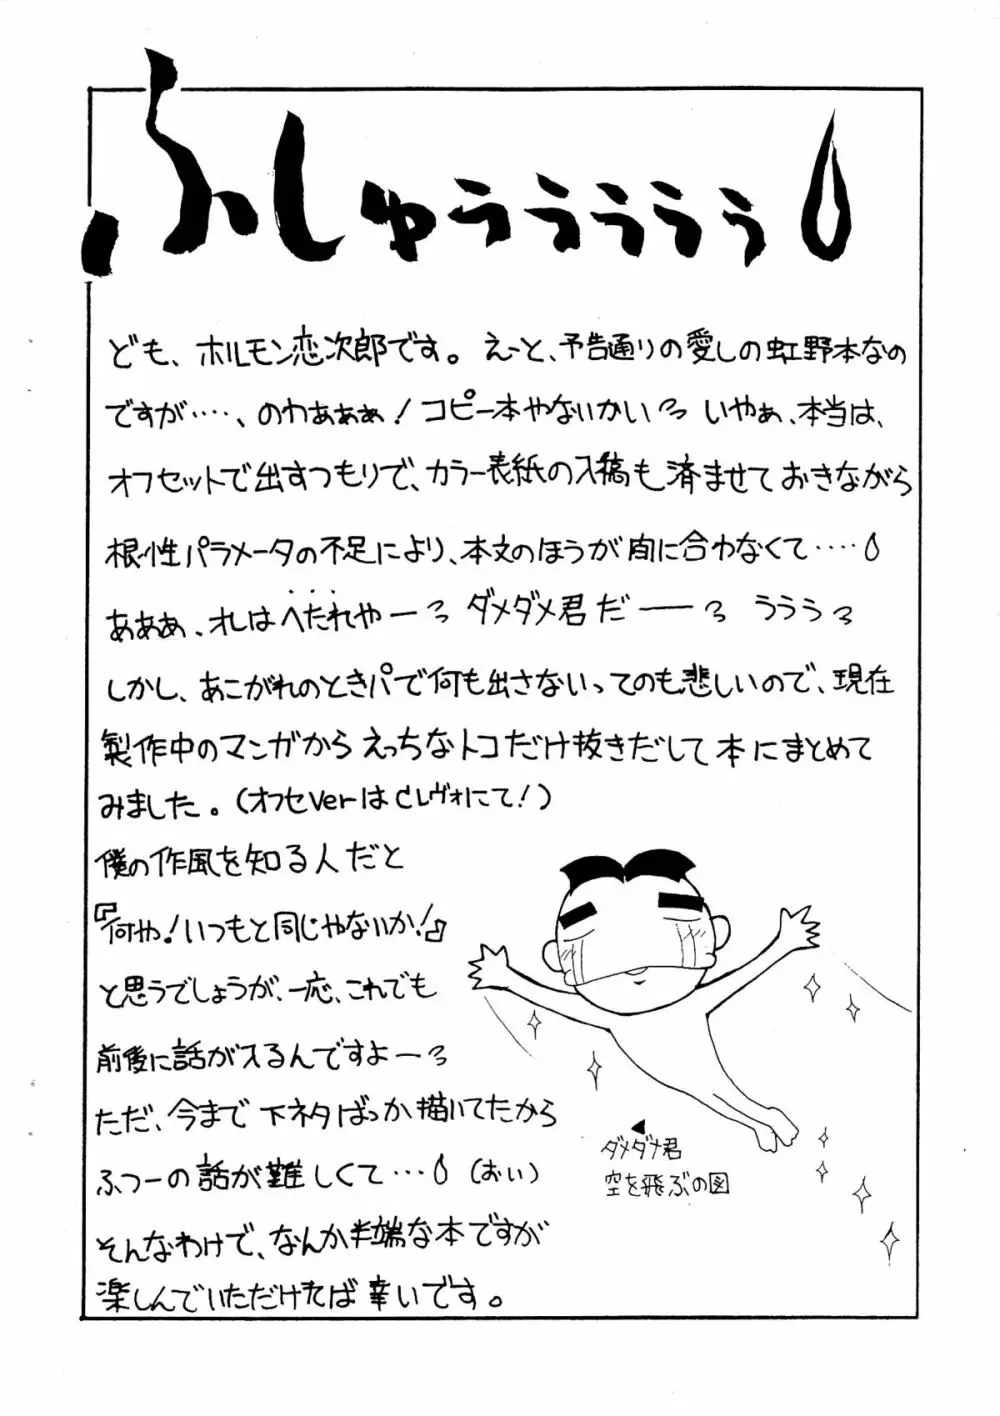 ふしゅぅぅぅぅぅ
ども、ホルモン恋次郎です。えーと、予告通りの愛しの虹野本なの
ですが‥‥、のわぁぁぁ!コピー本やないかいっ いやぁ、本当は、
オフセットで出すつもりで、カラー表紙の入稿も済ませておきながら
根性パラメータの不足により、本文のほうが間に合わなくて‥‥
あぁぁ、オレはへたれやーっ ダメダメ君だーっ うぅぅっ
しかし、あこがれのときパで何も出さないってのも悲しいので、現在
製作中のマンガからえっちなトコだけ抜きだして本にまとめて
みました。(オフセVerはCレヴォにて!)
僕の作風を知る人だと
『何や!いつもと同じやないか!』
と思うでしょうが、一応、これでも
前後に話が入るんですよーっ
ただ、今まで下ネタばっか描いてたから
ふつーの話が難しくて‥‥(おい)
そんなわけで、なんか半端な本ですが
楽しんでいただければ幸いです。
◀
ダメダメ君
空を飛ぶの図